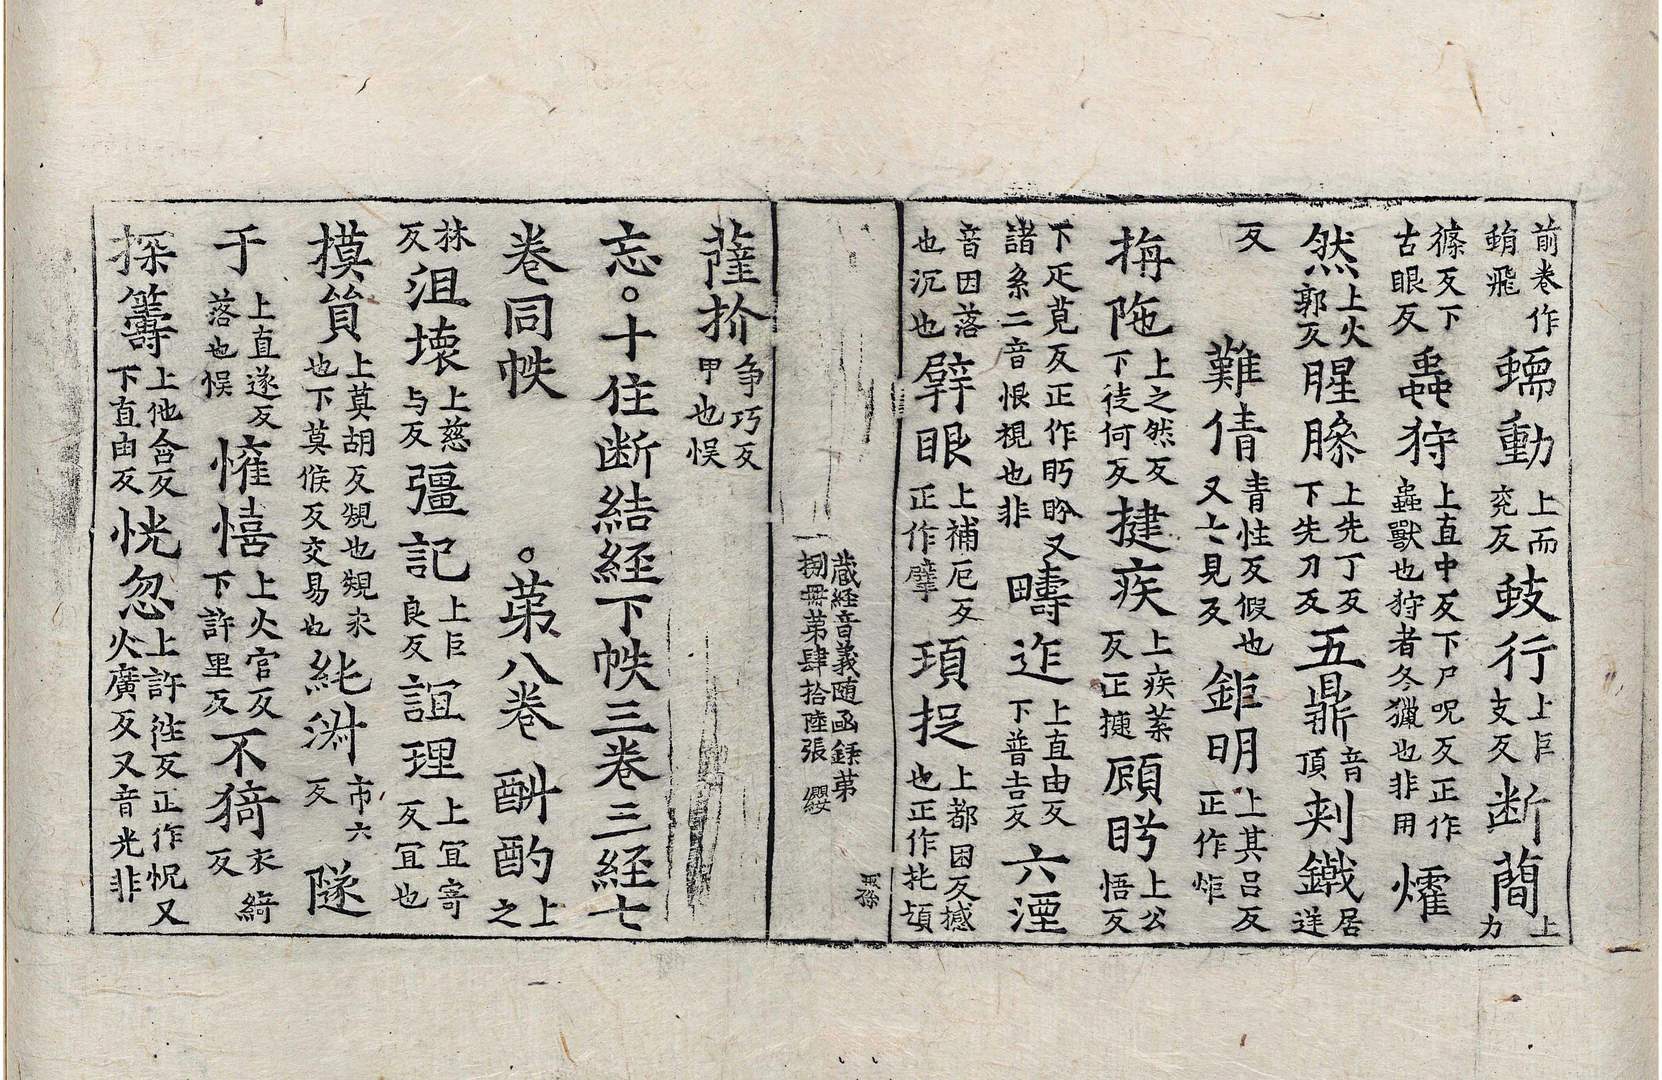 前卷作蛕飛蠕動上而兖反蚑行上巨支反断蕳上力
篠反下古眼反蟲狩上直中反下尸呪反正作蟲獸也狩者冬獵也非用𤓉
然上火郭反腥臊上先丁反下先刀反五鼎音頂刾鐵居逆
反難倩青性反假也又七見反鉅明上其吕反正作炬
栴陁上之然反下徒何反揵疾上疾葉反正㨗頋眄上公悟反
下疋莧反正作眄盻又諸系二音恨視也非疇迮上直由反下普吉反六湮
音因落也沉也擘眼上補厄反正作擘頊捉上都困反撼也正作扽頓
蔵経音義随函錄第捌冊第肆拾陸張 纓
薩扴争巧反甲也悮
忘。十住断結経下帙三卷三経七
卷同帙 。第八卷 酙酌上之
林反沮壊上慈与反彊記上巨良反誼理上冝寄反冝也
摸貿上莫胡反規也規求也下莫候反交易也純淑市六反墜
于上直遂反落也悮懽憘上火官反下許里反不猗衣綺反
探籌上他含反下直由反恍忽上許往反正作怳又火廣反又音光非